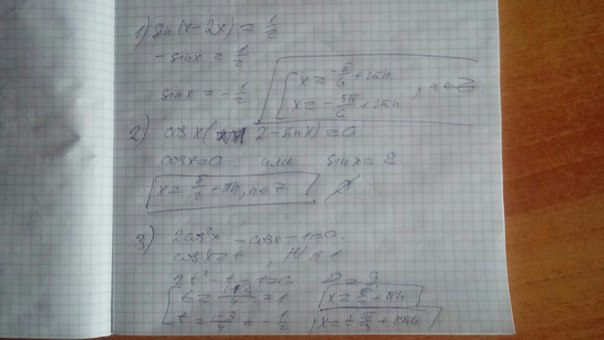 1) sin(x-2x) = 1/2
-sinx = 1/2
sinx = -1/2
x = -π/6 + 2πn
x = -5π/6 + 2πn , n∈Z
2) cosx( 2-sinx) = 0
cosx=0 или sinx = 2
x = π/2 + πn, n∈Z ∅
3) 2cos²x - cosx - 1 = 0
cosx = t , |t| ≤ 1
2t² - t - 1 = 0 D = 9
t = 1+3/4 = 1
t = 1-3/4 = -1/2